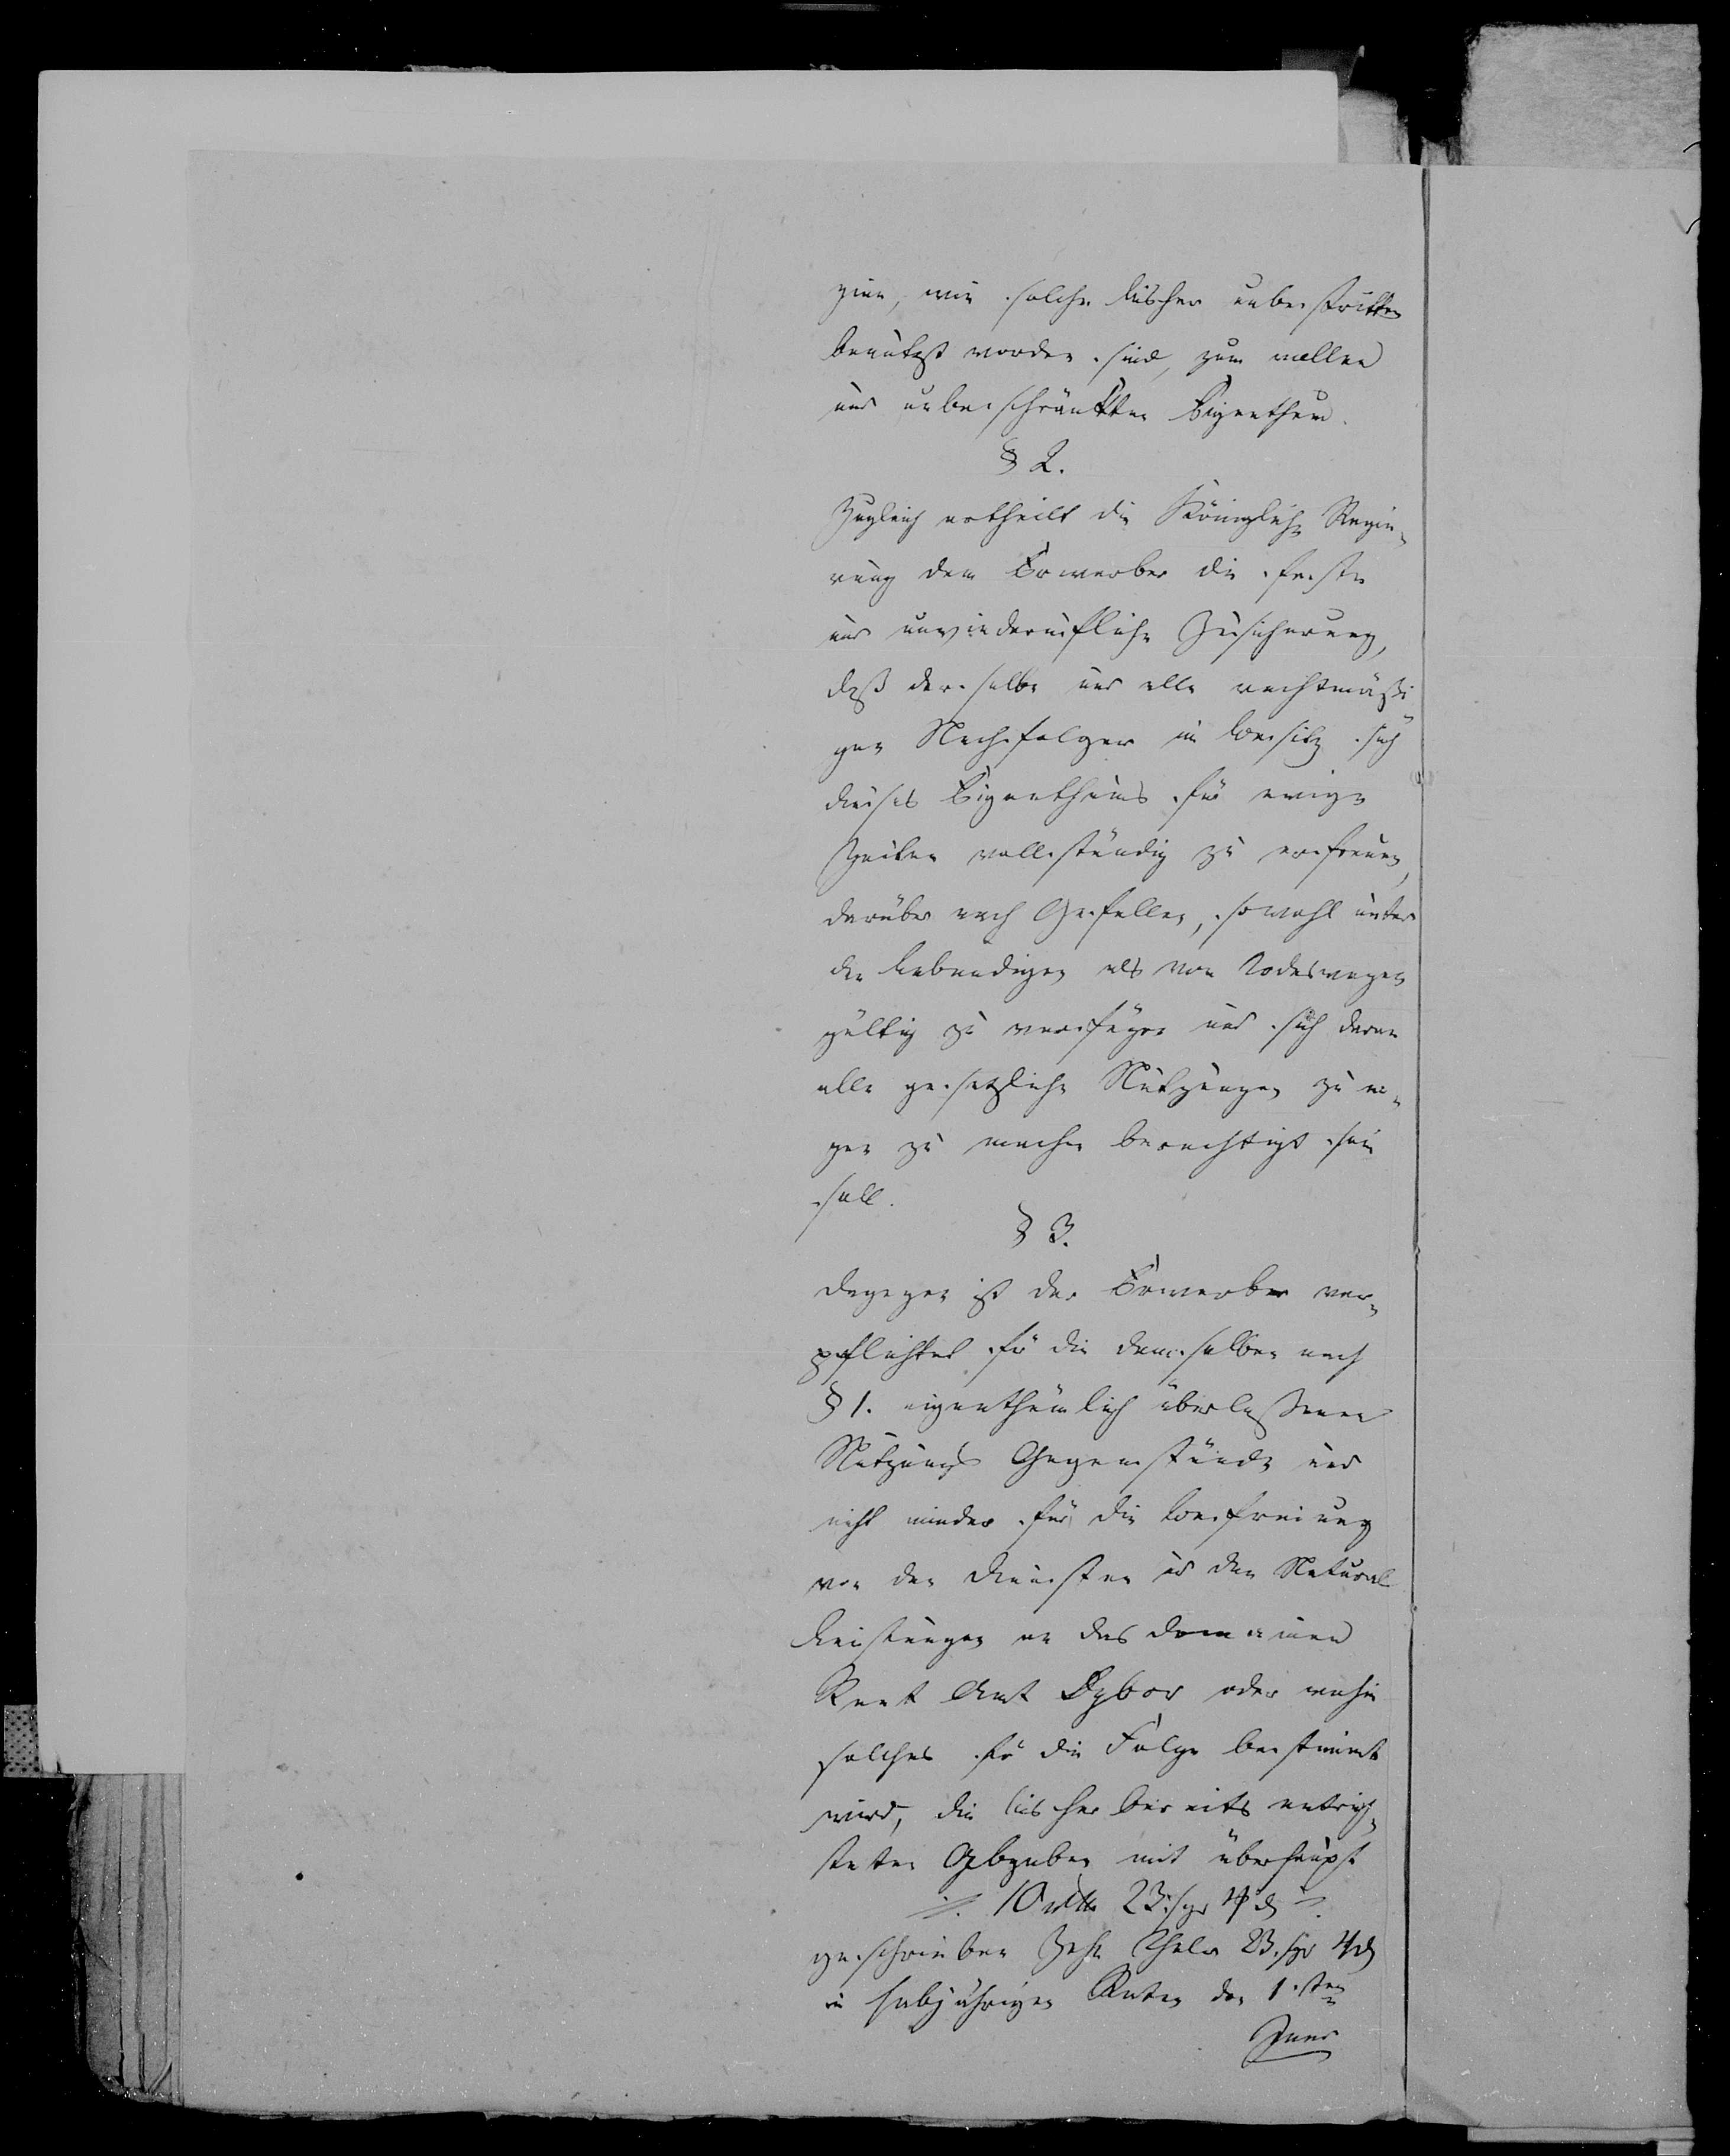 zien, wie solche bisher unbestritten
benutzt worden sind, zum vollen
und unbeschränkten Eigenthum.
§ 2.
Zugleich ertheilt die Königliche Regie-
rung dem Erwerber die feste
und unwiederrufliche Zusicherung,
daß derselbe und alle rechtmäßi
gen Nachfolger im Besitz sich
dieses Eigenthums für ewige
Zeiten vollständig zu erfreuen,
darüber nach Gefallen, sowohl unter
den Lebendigen als von Todeswegen
gültig zu verfügen und sich deren
alle gesetzliche Nutzungen zu ei-
gen zu machen berechtigt sein
soll.
§ 3.
Dagegen ist der Erwerber ver-
pflichtet für die demselben nach
§ 1. eigenthümlich überlassenen
Nutzungs Gegenstände und
nicht minder für die Befreiung
von den Diensten und den Natural
Leistungen an das Domainen
Rent Amt Dybow oder wohin
solches für die Folge bestimmt
wird, die bisher bereits entrich-
teten Abgaben mit überhaupt
10 rthr 23 sgr 4 d
geschrieben Zehn Thaler 23 sgr 4 d
in halbjährigen Raten den 1sten
Juni